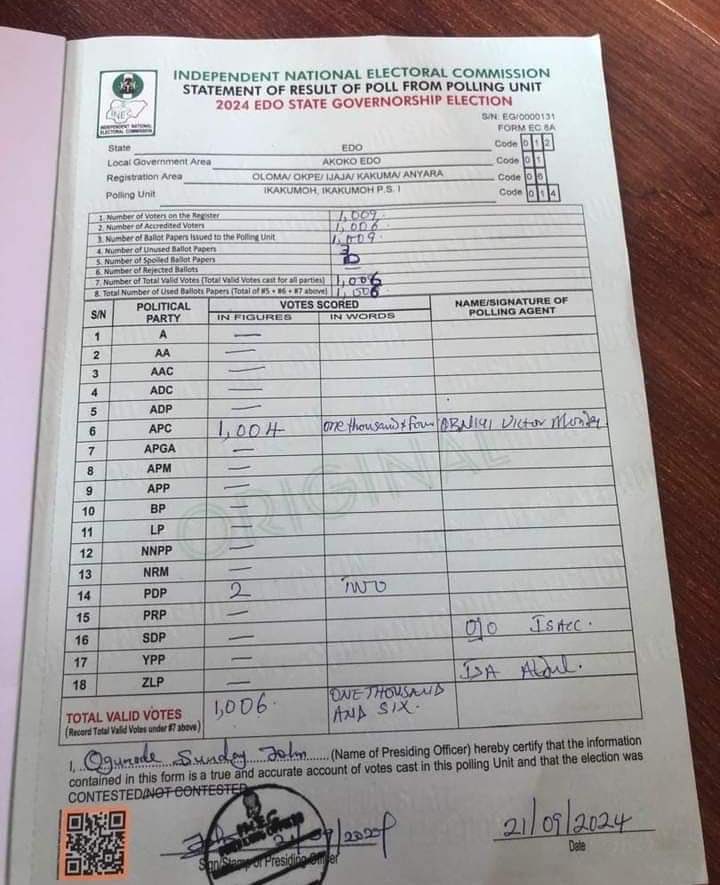 INDEPENDENT NATIONAL ELECTORAL COMMISSION
STATEMENT OF RESULT OF POLL FROM POLLING UNIT
2024 EDO STATE GOVERNORSHIP ELECTION
INEC
INDEPENDENT NATIONAL
ELECTORAL COMMISSION
S/N: EG/0000131
FORM EC 8A
State EDO Code 0 1 2
Local Government Area AKOKO EDO Code 0 1
Registration Area OLOMA/ OKPE/ IJAJA/ KAKUMA/ ANYARA Code 0 6
Polling Unit IKAKUMOH, IKAKUMOH P.S. I Code 0 1 4
1. Number of Voters on the Register 1,009
2. Number of Accredited Voters 1,006
3. Number of Ballot Papers Issued to the Polling Unit 1,009
4. Number of Unused Ballot Papers
5. Number of Spoiled Ballot Papers
6. Number of Rejected Ballots —
7. Number of Total Valid Votes (Total Valid Votes cast for all parties) 1,006
8. Total Number of Used Ballots Papers (Total of #5 + #6 + #7 above) 1,006
S/N POLITICAL PARTY VOTES SCORED NAME/SIGNATURE OF POLLING AGENT
IN FIGURES IN WORDS
1 A —
2 AA —
3 AAC —
4 ADC —
5 ADP —
6 APC 1,004 one thousand & four Victor Monday
7 APGA —
8 APM —
9 APP —
10 BP —
11 LP —
12 NNPP —
13 NRM —
14 PDP 2 TWO
15 PRP —
16 SDP — OJO ISACC.
17 YPP —
18 ZLP — ISA Abdul.
TOTAL VALID VOTES 1,006. ONE THOUSAND AND SIX.
(Record Total Valid Votes under #7 above)
ORIGINAL
I, Ogunode Sunday John (Name of Presiding Officer) hereby certify that the information
contained in this form is a true and accurate account of votes cast in this polling Unit and that the election was
CONTESTED/NOT CONTESTED
21/09/2024 21/09/2024
Sign/Stamp of Presiding Officer Date